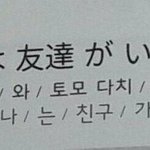 友達 が い
/ 와 / 토모 다치 /
나 / 는 / 친구 / 가